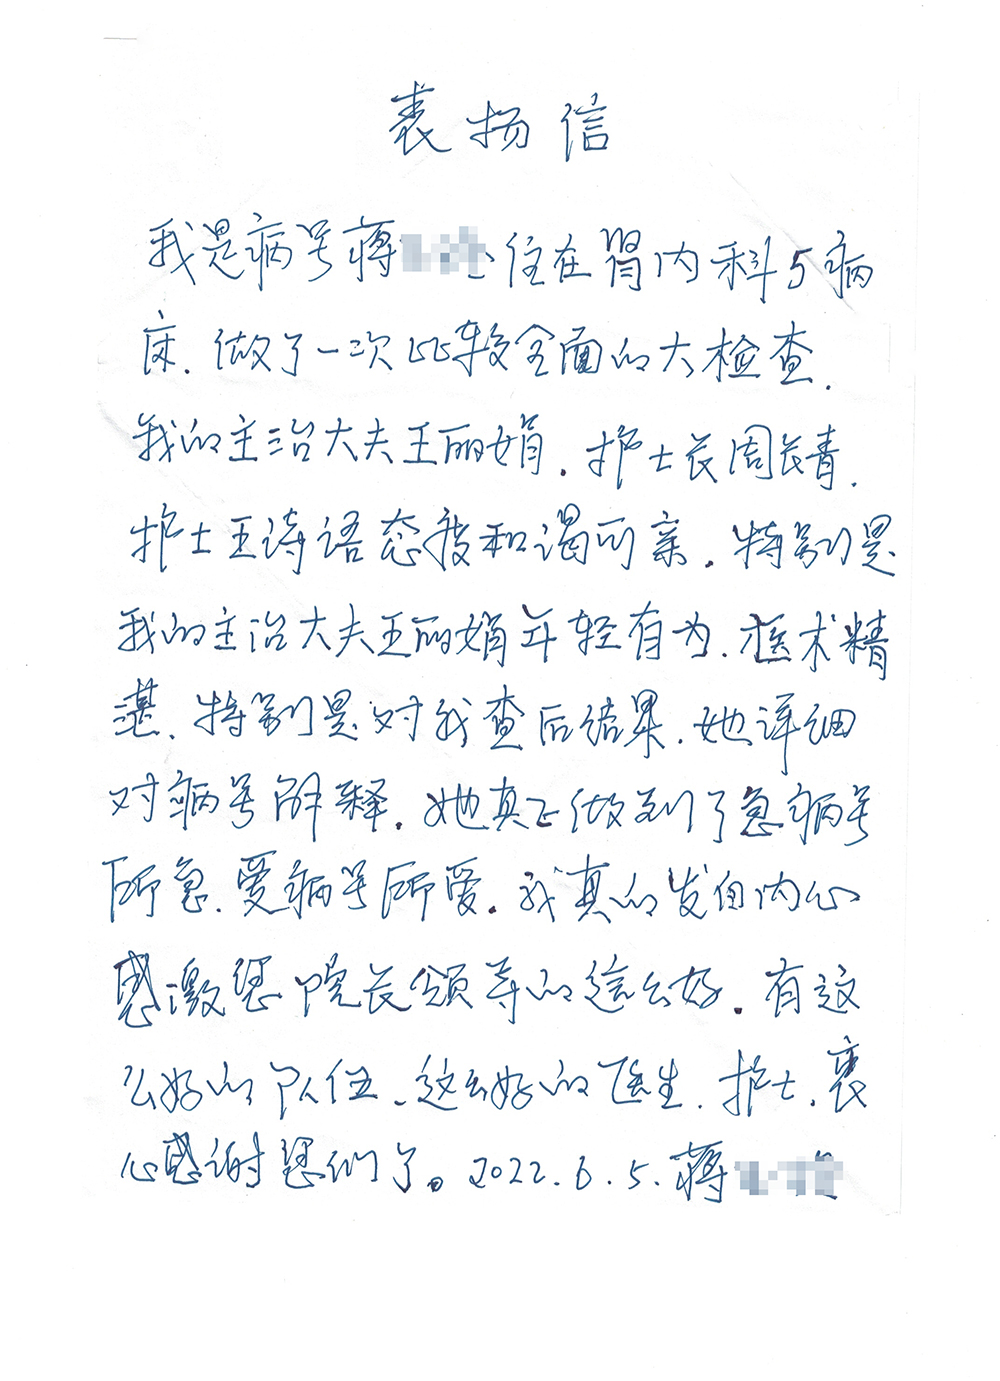 表扬信
我是病号蒋 住在肾内科5病
床.做了一次比较全面的大检查.
我的主治大夫王丽娟.护士长周长青.
护士王诗语态度和谒可亲.特别是
我的主治大夫王丽娟年轻有为.医术精
湛.特别是对我查后结果.她详细
对病号解释.她真正做到了急病号
所急.爱病号所爱.我真的发自内心
感激您院长领导的这么好.有这
么好的队伍、这么好的医生.护士.衷
心感谢您们了。2022.6.5.蒋